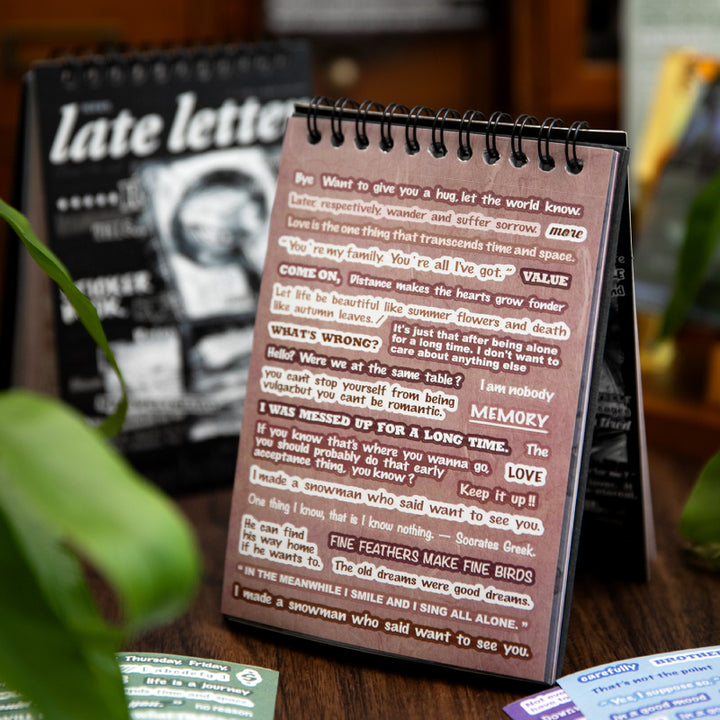 late letter
Bye Want to give you a hug, let the world know.
Later, respectively, wander and suffer sorrow. more
Love is the one thing that transcends time and space.
“You're my family. You're all I've got.” VALUE
COME ON, Distance makes the hearts grow fonder
Let life be beautiful like summer flowers and death
like autumn leaves./
WHAT'S WRONG?
It's just that after being alone
for a long time. I don't want to
care about anything else
Hello? Were we at the same table?
I am nobody
you can't stop yourself from being
vulgarbut you cant be romantic.
MEMORY
I WAS MESSED UP FOR A LONG TIME.
The
If you know that's where you wanna go,
you should probably do that early
acceptance thing, you know?
LOVE
Keep it up!!
I made a snowman who said want to see you.
One thing I know, that is I know nothing. — Socrates Greek.
He can find
his way home
if he wants to.
FINE FEATHERS MAKE FINE BIRDS
The old dreams were good dreams.
“IN THE MEANWHILE I SMILE AND I SING ALL ALONE.”
I made a snowman who said want to see you.
Thursday, Friday,
life is a journey
no reason
carefully
BROTHER
That's not the point
Yes, I suppose so.
good mood